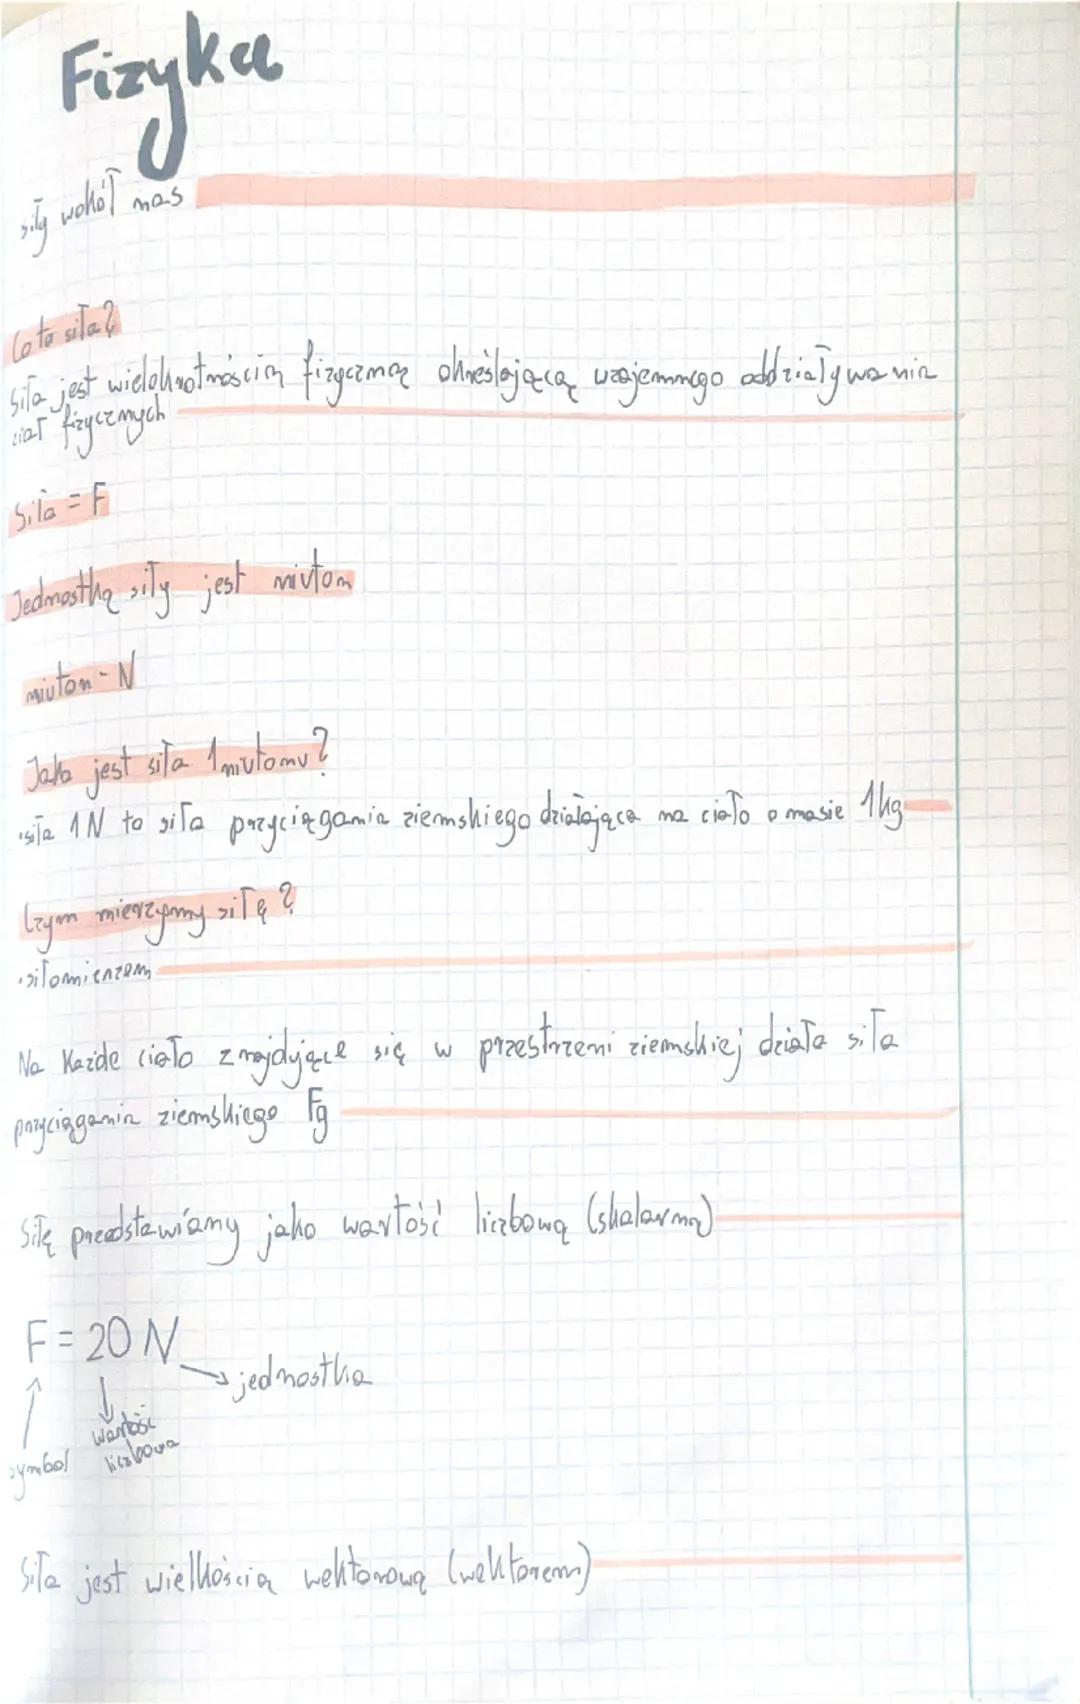 Fizyka
siły wokół nas
Co to siła?
Siła jest wielokrotnością fizyczną określającą wzajemnego oddziaływania
ciał fizycznych
Siła = F
Jednostką siły jest niuton
niuton - N
Jaka jest siła 1 niutonu?
• siła 1N to siła przyciągania ziemskiego działająca na ciało o masie 1kg
Czym mierzymy siłę?
• siłomierzem
Na Każde ciało znajdujące się w przestrzeni ziemskiej działa siła
przyciągania ziemskiego Fg
Siłę przedstawiamy jako wartość liczbową (skalarną)
F = 20 N
jednostka
wartość
liczbowa
symbol
Siła jest wielkością wektorową (wektorem)